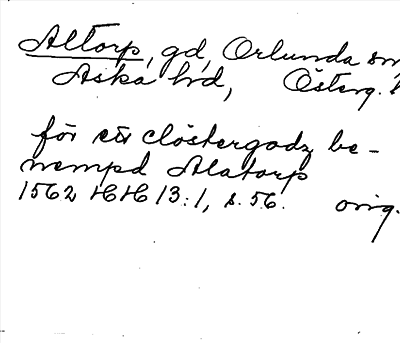 Altorp, gd, Orlunda sn
Aska hd, Österg.
för ett clöstergodz be-
nempd Alatorp
1562 HH 13:1, s. 56. orig.